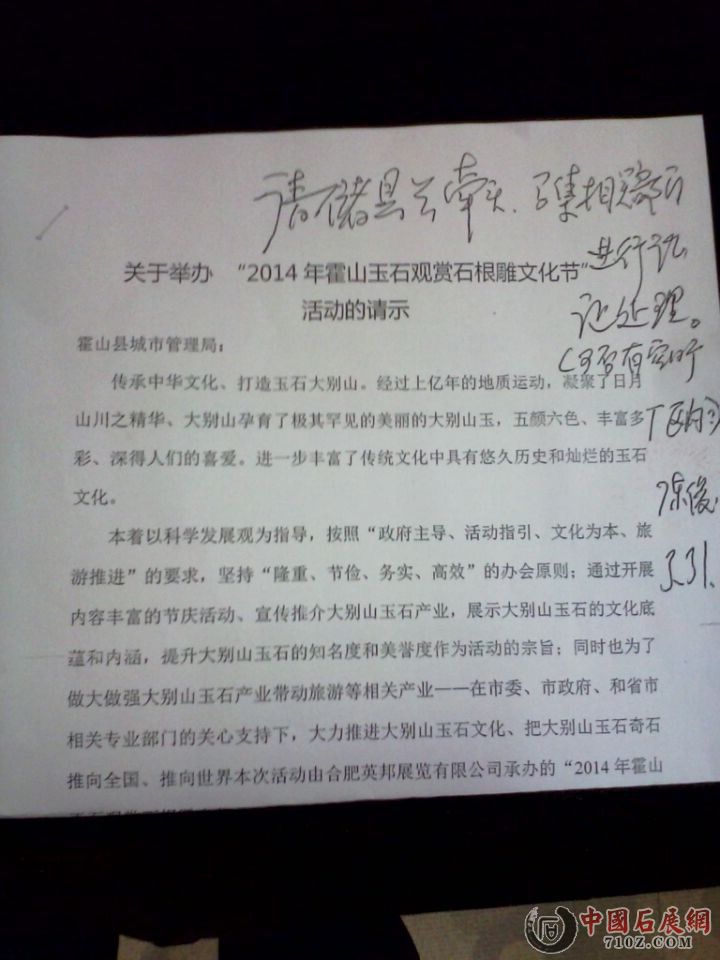 请储县长牵头、召集相关部门
进行论
证处理。
陈俊
3.31.
关于举办 “2014年霍山玉石观赏石根雕文化节”
活动的请示
霍山县城市管理局：
传承中华文化、打造玉石大别山。经过上亿年的地质运动，凝聚了日月
山川之精华、大别山孕育了极其罕见的美丽的大别山玉，五颜六色、丰富多
彩、深得人们的喜爱。进一步丰富了传统文化中具有悠久历史和灿烂的玉石
文化。
本着以科学发展观为指导，按照“政府主导、活动指引、文化为本、旅
游推进”的要求，坚持“隆重、节俭、务实、高效”的办会原则；通过开展
内容丰富的节庆活动、宣传推介大别山玉石产业，展示大别山玉石的文化底
蕴和内涵，提升大别山玉石的知名度和美誉度作为活动的宗旨；同时也为了
做大做强大别山玉石产业带动旅游等相关产业——在市委、市政府、和省市
相关专业部门的关心支持下，大力推进大别山玉石文化、把大别山玉石奇石
推向全国、推向世界本次活动由合肥英邦展览有限公司承办的“2014年霍山
中國石展網
710Z.COM